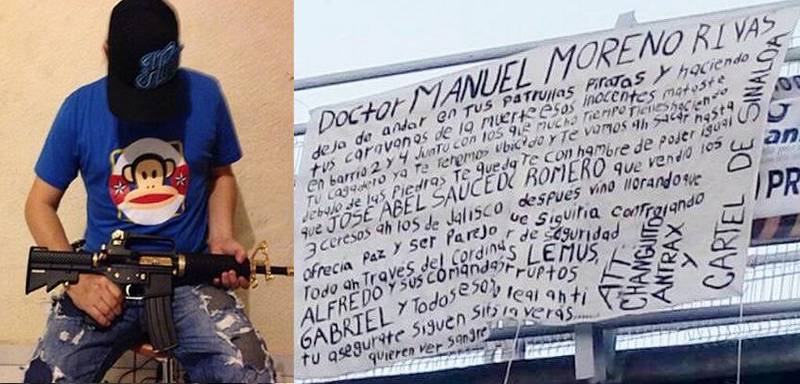 DOCTOR MANUEL MORENO RIVAS
deja de andar en TUS PATRULLAS PIRATAS Y haciendo
TUS CARAVANAS de la muerte esos inocentes mataste
en barrio 2 y 4 Junto con los que mucho Tiempo Tienes haciendo
Tu cagadero ya Te Tenemos ubicado y Te vamos ah Sacar hasta
debajo de las Piedras Te queda Te con hambre de poder igual
que JOSE ABEL SAUCEDO ROMERO que vendio los
3 ceresos ah los de Jalisco despues vino llorando que
ofrecia Paz y ser Parejo ue Siguiria controlando
Todo ah Traves del Cordina r de seguridad
ALFREDO LEMUS,
y sus comandas rruptos
GABRIEL y Todos eso leal anti
tu asegurate Siguen Sits la verás.....
quieren ver sangre
ATT
CHANGUITO
ANTRAX
Y
CARTEL DE SINALOA
PR